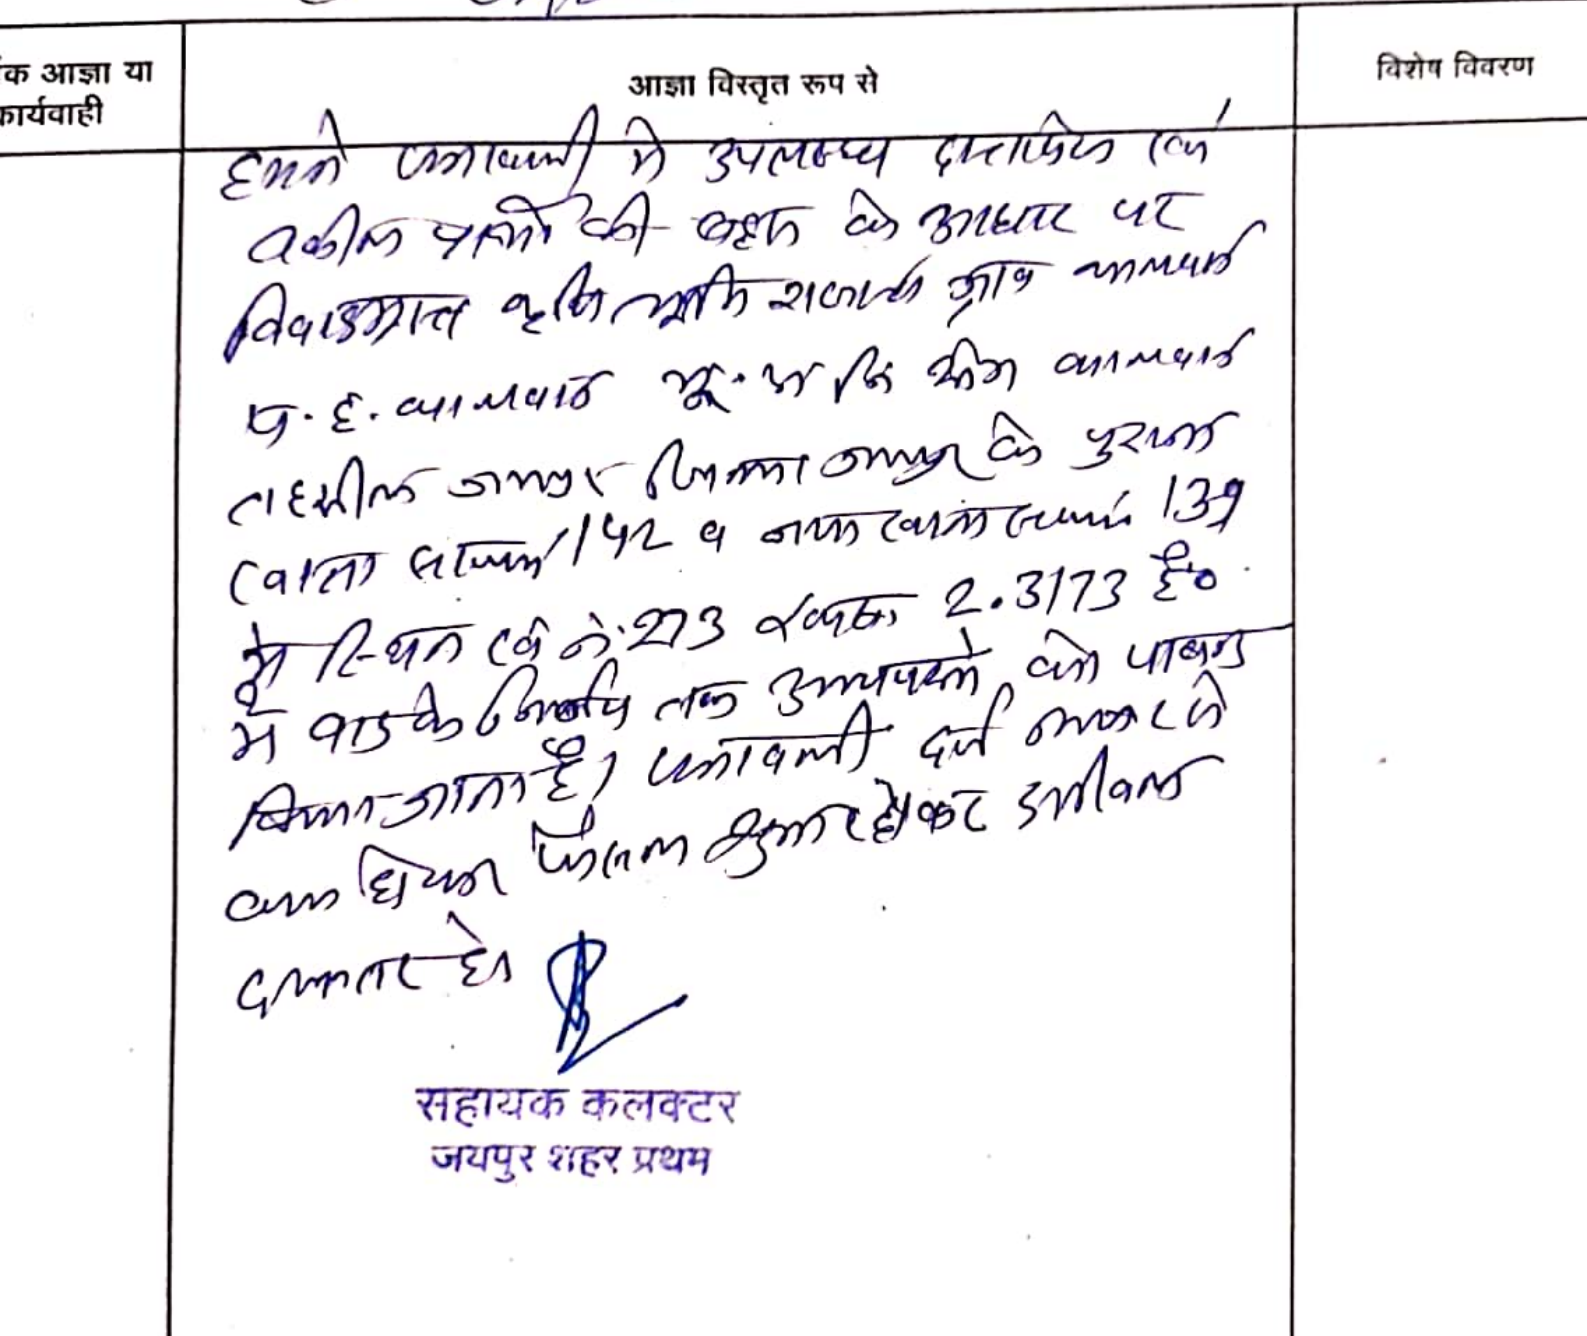 क आज्ञा या
कार्यवाही
आज्ञा विस्तृत रूप से
विशेष विवरण
हमने पत्रावली मे उपलब्ध दस्तावेज एवं
वकील प्रार्थी की बहस के आधार पर
विवादग्रस्त कृषि भूमि ग्राम
प. ह. भू.
तहसील जयपुर जिला जयपुर के पुराना
खाता संख्या 142 व नया खाता संख्या 139
मे स्थित ख नं. 273 रकबा 2.3173 है०
मे वाद के निर्णय तक उभयपक्षो को पाबन्द
किया जाता है। पत्रावली दर्ज
फैसल शुमार होकर
दफ्तर हो
सहायक कलक्टर
जयपुर शहर प्रथम